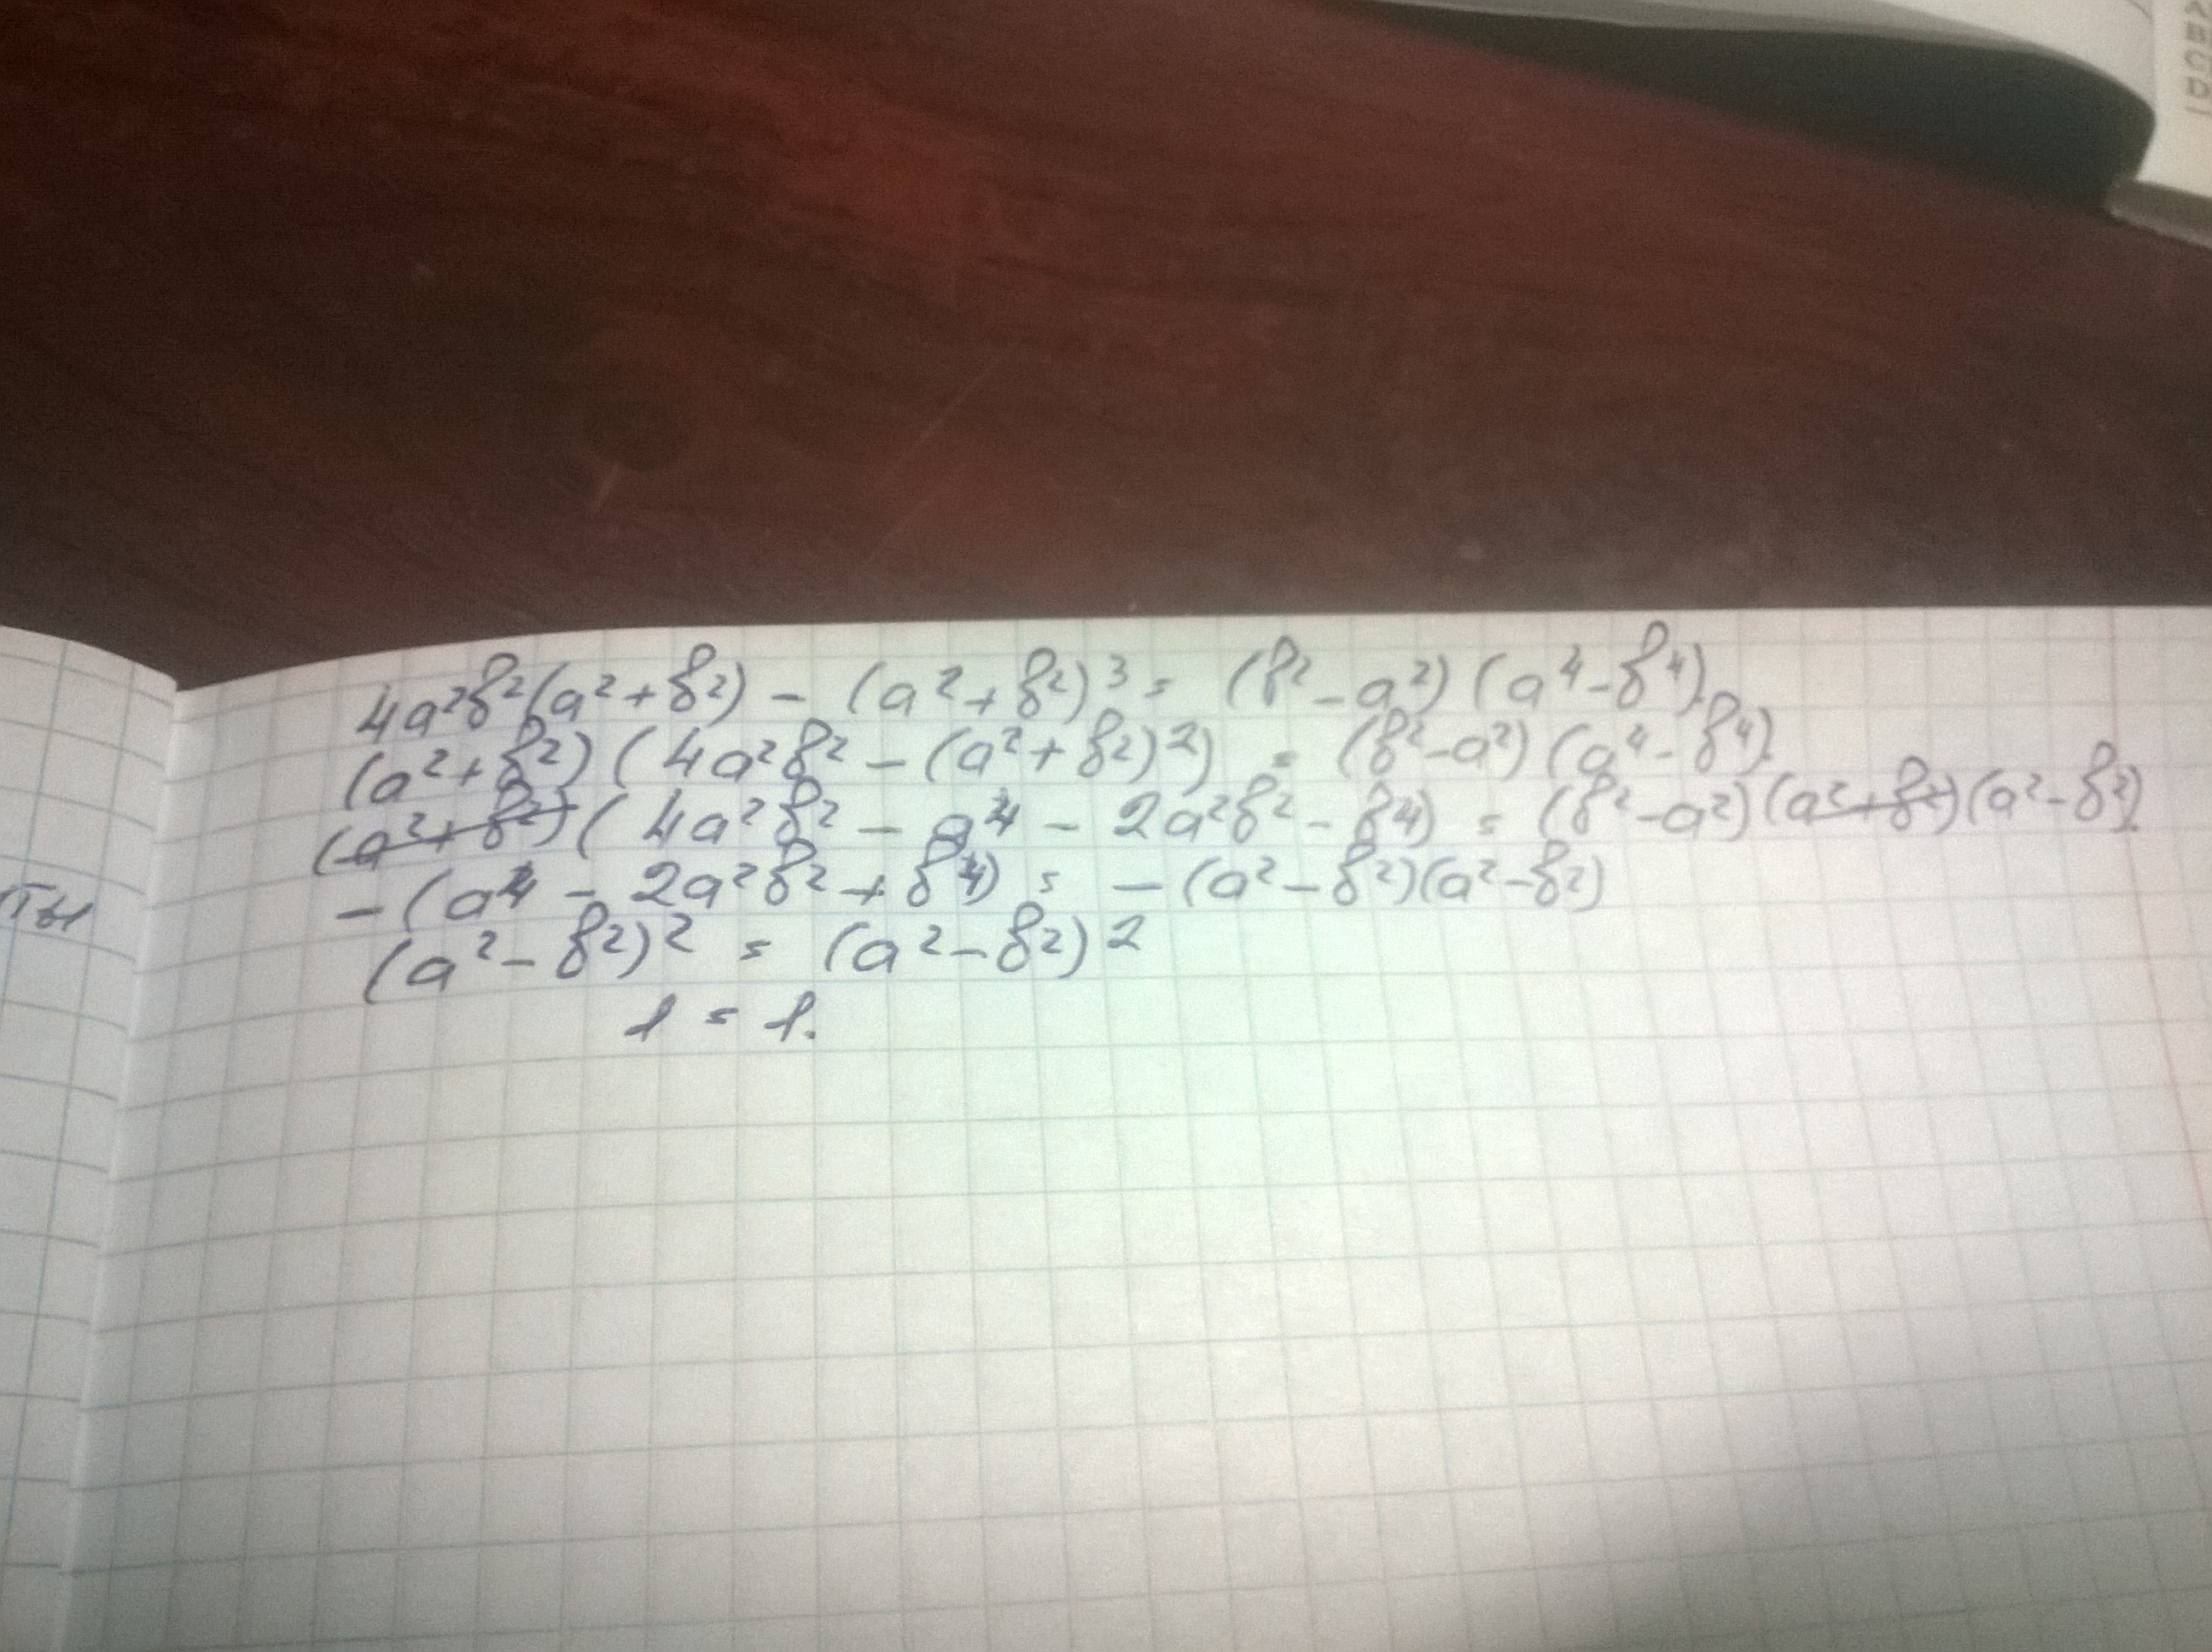 4a²b²(a²+b²) - (a²+b²)³ = (b²-a²)(a⁴-b⁴).
(a²+b²)(4a²b² - (a²+b²)²) = (b²-a²)(a⁴-b⁴).
(a²+b²)(4a²b² - a⁴ - 2a²b² - b⁴) = (b²-a²)(a²+b²)(a²-b²).
-(a⁴ - 2a²b² + b⁴) = -(a²-b²)(a²-b²)
(a²-b²)² = (a²-b²)²
1 = 1.
ты